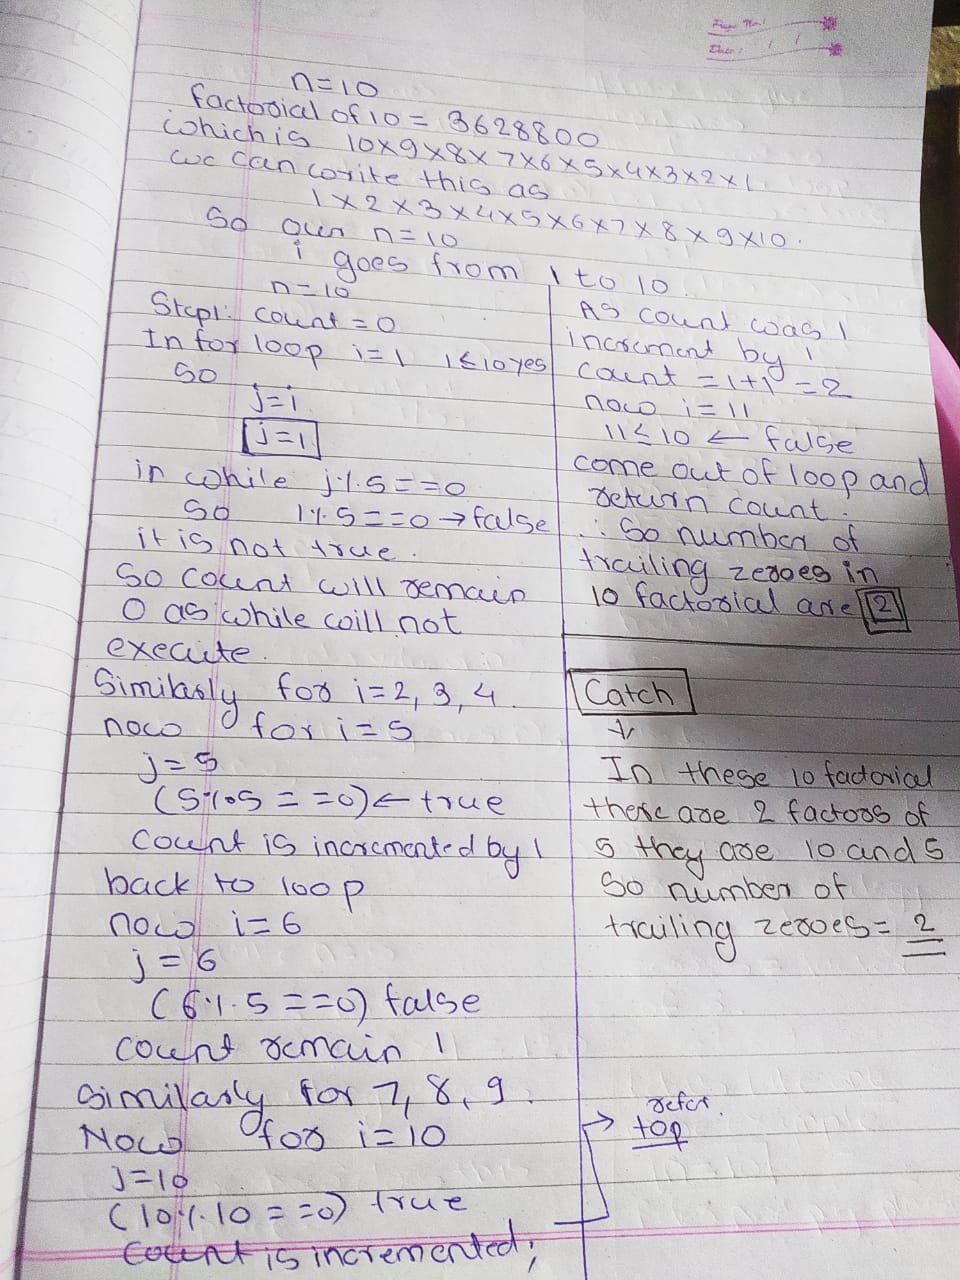 Page No:
Date: / /
n=10
factorial of 10 = 3628800
which is 10×9×8×7×6×5×4×3×2×1.
we can write this as
1×2×3×4×5×6×7×8×9×10.
So our n=10
i goes from 1 to 10.
n=10
Step1: count = 0
In for loop i=1 1≤10 yes
so
j=i
j=1
in while j%5==0
so 1%5==0→false
it is not true.
So count will remain
0 as while will not
execute.
Similarly for i=2,3,4.
now for i=5
j=5
(5%5==0)←true
count is incremented by 1
back to loop
now i=6
j=6
(6%5==0) false
count remain 1
Similarly for 7,8,9.
Now for i=10
j=10
(10%10==0) true
count is incremented;
As count was 1
increment by 1
count =1+1 =2
now i=11
11≤10 ← false
come out of loop and
return count.
∴ So number of
trailing zeroes in
10 factorial are 2
Catch
↓
In these 10 factorial
there are 2 factors of
5 they are 10 and 5
So number of
trailing zeroes= 2
→ refer.
top